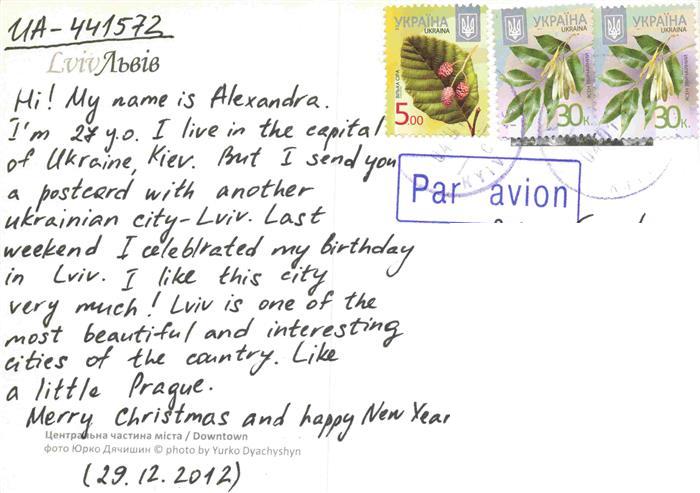 UA-441572
LvivЛьвів
Hi! My name is Alexandra.
I'm 27 y.o. I live in the capital
of Ukraine, Kiev. But I send you
a postcard with another
ukrainian city-Lviv. Last
weekend I celebrated my birthday
in Lviv. I like this city
very much! Lviv is one of the
most beautiful and interesting
cities of the country. Like
a little Prague.
Merry Christmas and happy New Year
Центральна частина міста / Downtown
фото Юрко Дячишин © photo by Yurko Dyachyshyn
(29.12.2012)
УКРАЇНА
UKRAINE
ВІЛЬХА СІРА
5.00
УКРАЇНА
UKRAINE
30к.
УКРАЇНА
UKRAINE
30к.
Par avion